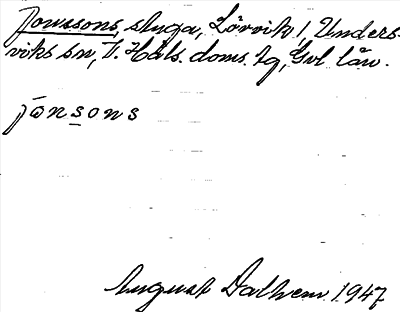 Jonssons, stuga, Lörvik 1, Unders-
viks sn, V. Häls. doms. tg, Gvl. län.
jōnsons
August Dalhem 1947